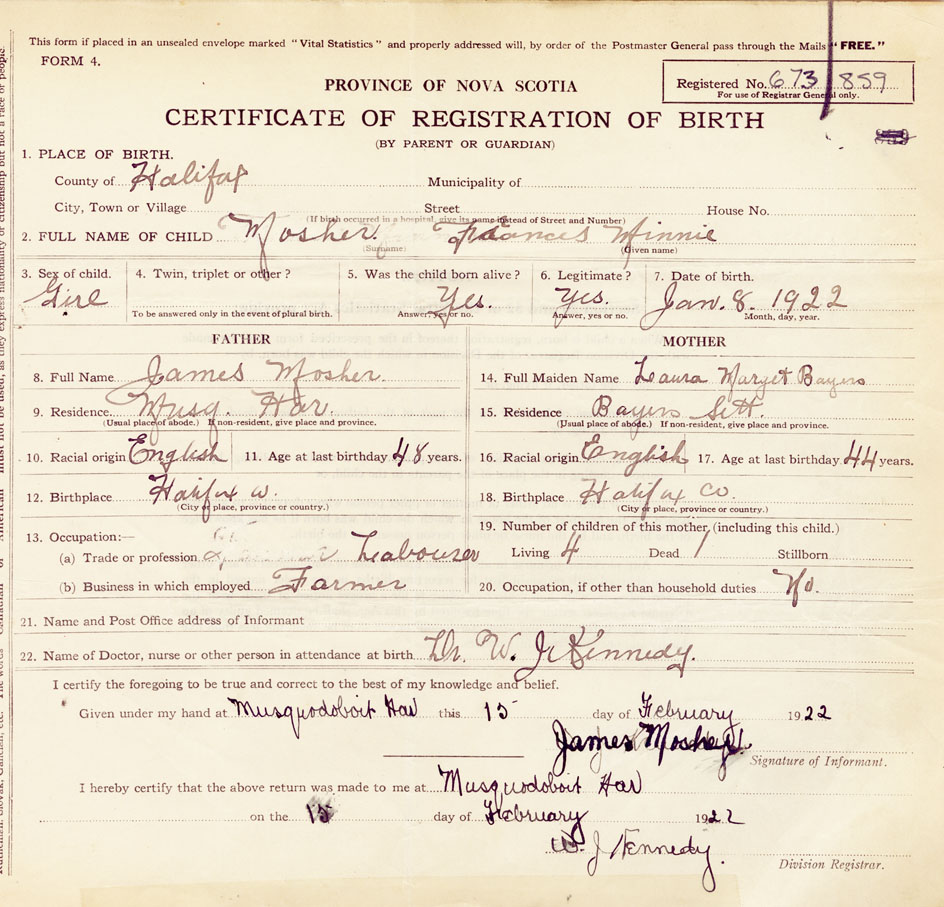 This form if placed in an unsealed envelope marked "Vital Statistics" and properly addressed will, by order of the Postmaster General pass through the Mails "FREE."
FORM 4.
Registered No. 673 859
For use of Registrar General only.
PROVINCE OF NOVA SCOTIA
CERTIFICATE OF REGISTRATION OF BIRTH
(BY PARENT OR GUARDIAN)
1. PLACE OF BIRTH.
County of Halifax Municipality of
City, Town or Village Street House No.
(If birth occurred in a hospital, give its name instead of Street and Number)
2. FULL NAME OF CHILD Mosher Frances Minnie
(Surname) (Given name)
3. Sex of child. 4. Twin, triplet or other? 5. Was the child born alive? 6. Legitimate? 7. Date of birth.
Girl Yes. Yes. Jan. 8. 1922
To be answered only in the event of plural birth. Answer, yes or no. Answer, yes or no. Month, day, year.
FATHER
8. Full Name James Mosher
9. Residence Musq. Har.
(Usual place of abode.) If non-resident, give place and province.
10. Racial origin English 11. Age at last birthday 48 years.
12. Birthplace Halifax
(City or place, province or country.)
13. Occupation:—
(a) Trade or profession Labourer
(b) Business in which employed Farmer
MOTHER
14. Full Maiden Name Laura Marget Bayers
15. Residence Bayers Sett.
(Usual place of abode.) If non-resident, give place and province.
16. Racial origin English 17. Age at last birthday 44 years.
18. Birthplace Halifax Co.
(City or place, province or country.)
19. Number of children of this mother (including this child.)
Living 4 Dead 1 Stillborn
20. Occupation, if other than household duties No.
21. Name and Post Office address of Informant
22. Name of Doctor, nurse or other person in attendance at birth Dr. W. J. Kennedy.
I certify the foregoing to be true and correct to the best of my knowledge and belief.
Given under my hand at Musquodoboit Har this 15 day of February 1922
James Mosher
Signature of Informant.
I hereby certify that the above return was made to me at Musquodoboit Har
on the 15 day of February 1922
W. J Kennedy.
Division Registrar.